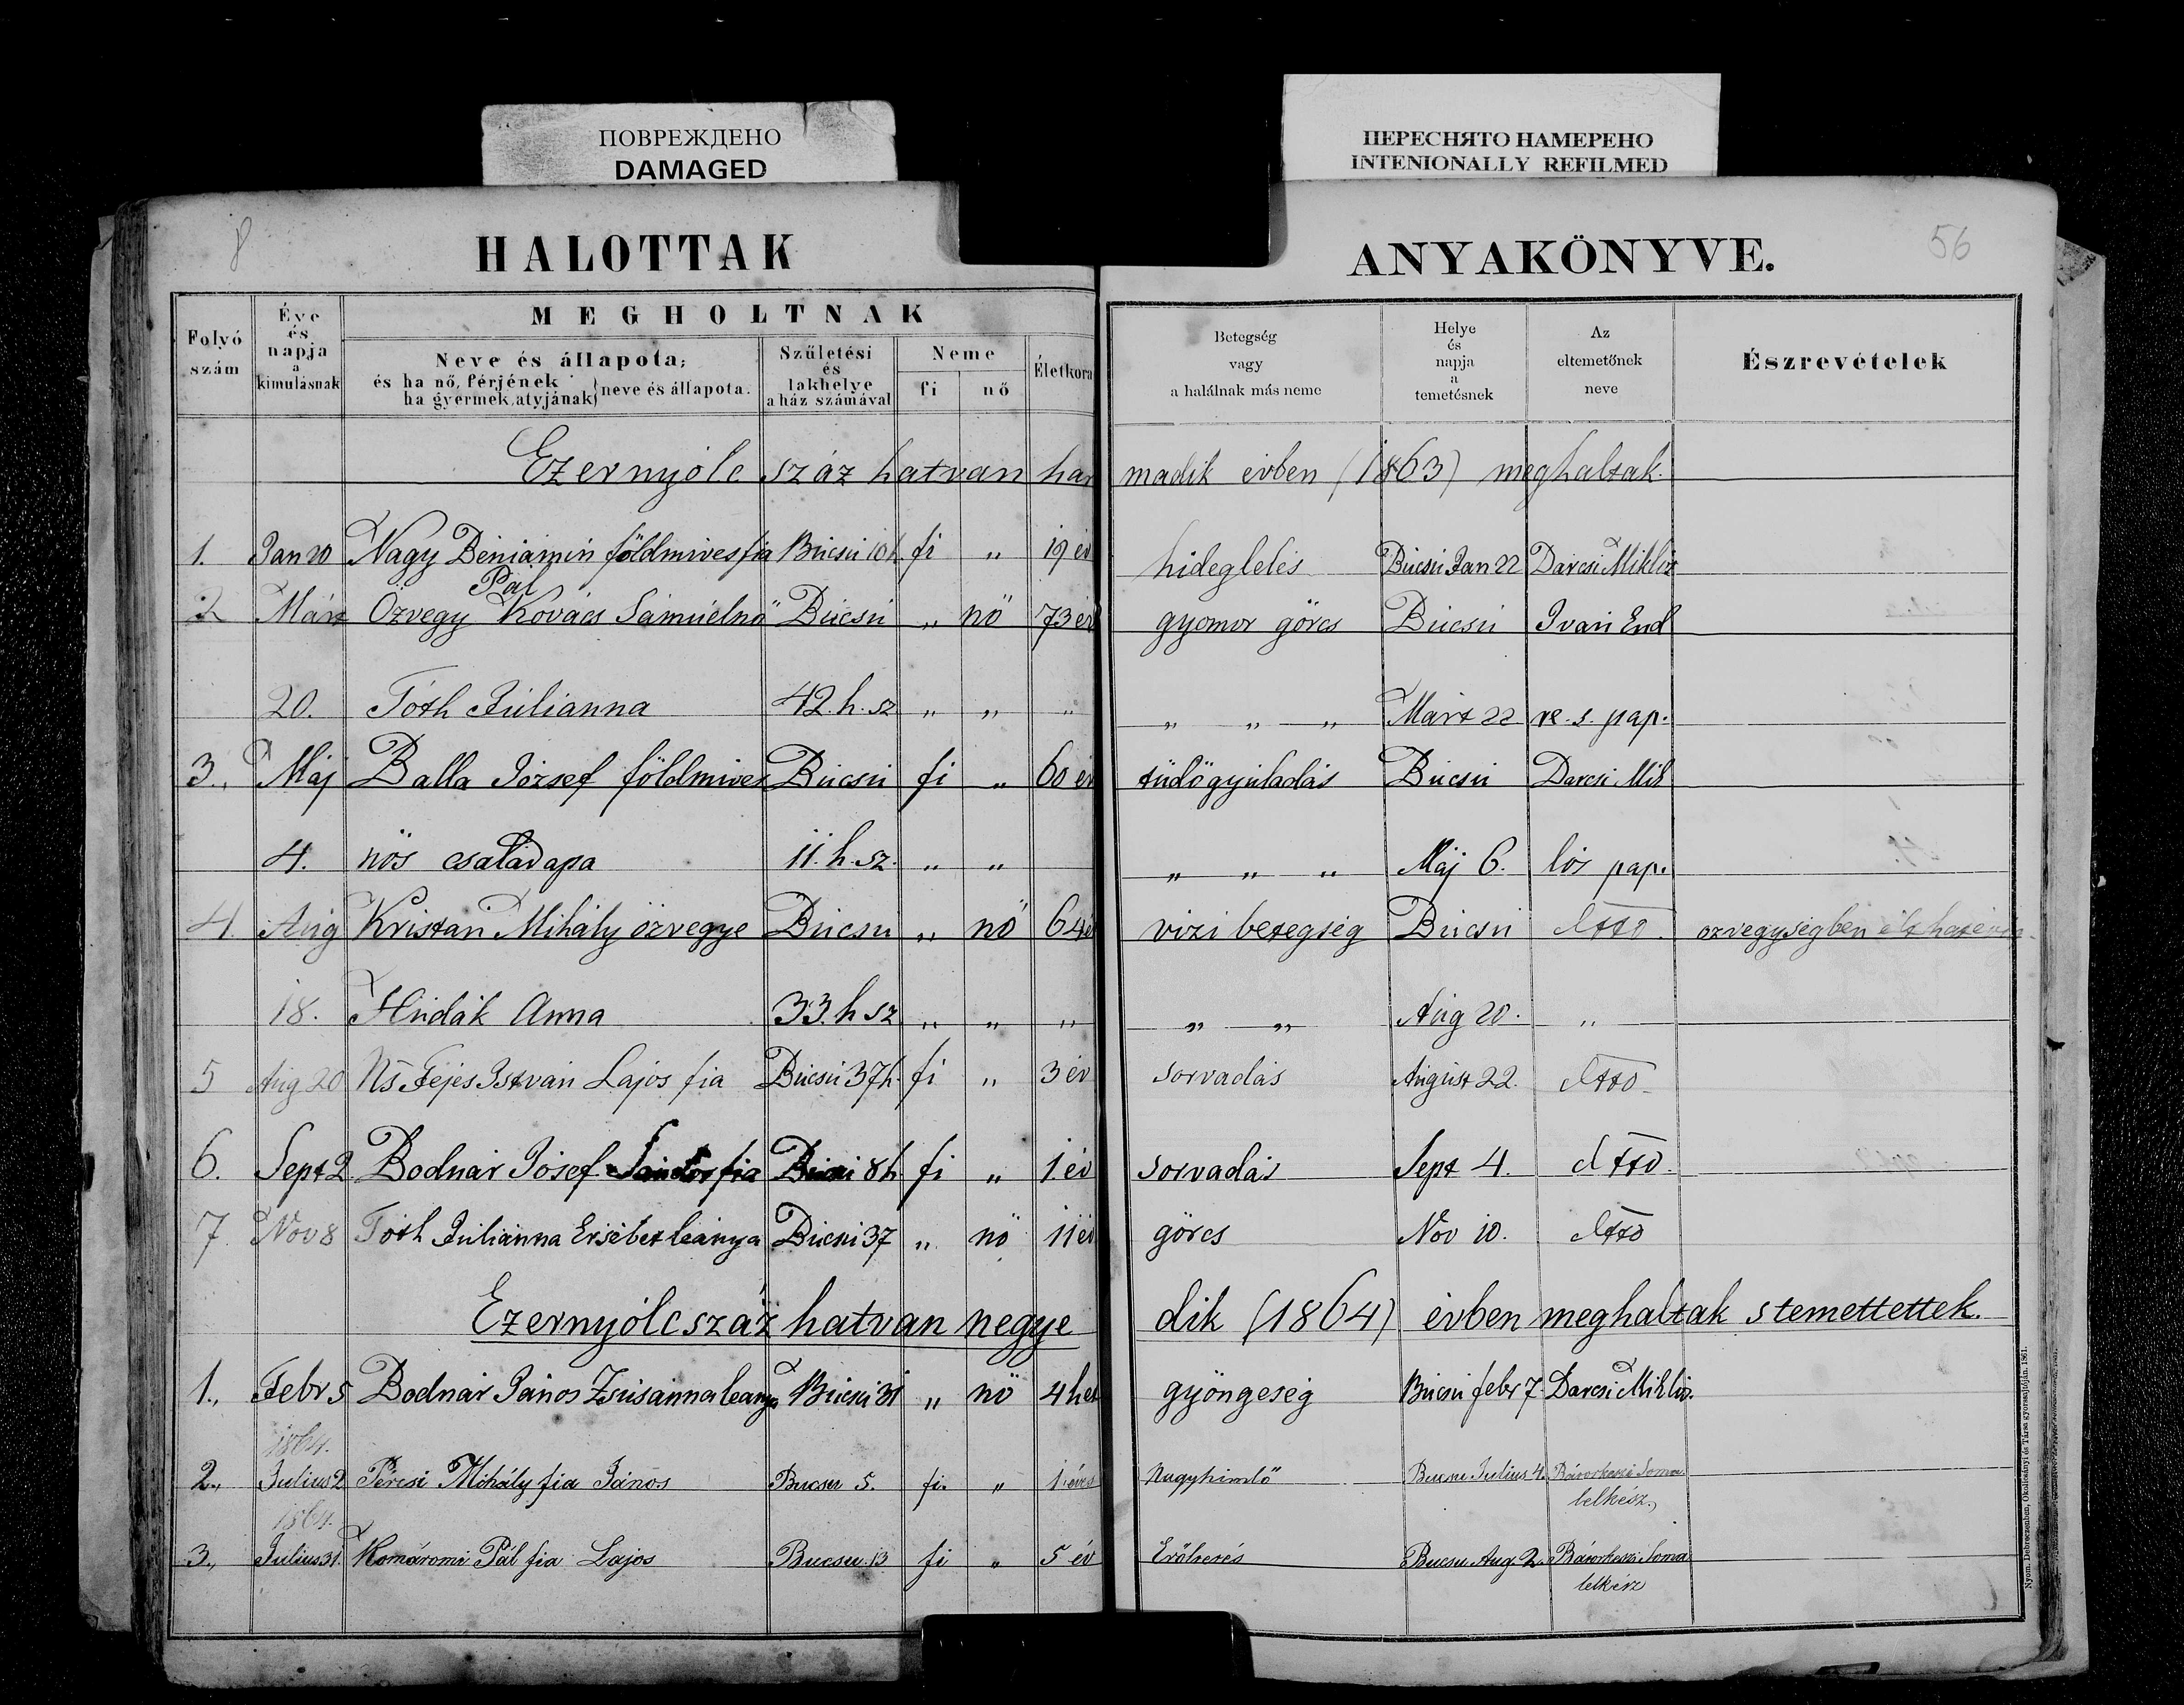 ПОВРЕЖДЕНО
DAMAGED
ПЕРЕСНЯТО НАМЕРЕНО
INTENIONALLY REFILMED
8
HALOTTAK
ANYAKÖNYVE.
56
Folyó szám
Éve és napja a kimulásnak
MEGHOLTNAK
Neve és állapota;
és ha nő, férjének
ha gyermek, atyjának} neve és állapota.
Születési és lakhelye a ház számával
Neme
fi
nő
Életkora
Betegség vagy a halálnak más neme
Helye és napja a temetésnek
Az eltemetőnek neve
Észrevételek
Ezernyólc száz hatvan har madik évben (1863) meghaltak.
1. Jan 20 Nagy Béniámin földmives fia Búcsú 10 h fi „ 19 év hideglelés Búcsú Jan 22 Darcsi Miklós
Pál
2 Márt Özvegy Kovács Sámúelnö Búcsú „ nö 73 év gyomor görcs Búcsú Ivári End
20. Tóth Júlianna 42. h. sz „ „ „ „ „ „ Márt 22 re. s. pap.
3., Máj Balla József földmives Búcsú fi „ 60 év tüdögyúladás Búcsú Darcsi Mik
4. nös családapa 11. h. sz. „ „ „ „ „ Máj 6. lós pap.
4. Aúg Kristán Mihály özvegye Búcsú „ nö 64 é vizi betegség Búcsú dtto. özvegységben élt hat
18. Húdák Anna 33. h sz „ „ „ „ „ Aúg 20. „
5 Aúg 20 Ns Fejes István Lajos fia Búcsú 37 h. fi „ 3 év sorvadás Aúgúst 22. dtto.
6. Sept 2 Bodnár Jósef Sándor fia 8 h fi „ 1. év sorvadás Sept 4. dtto.
7. Nov 8 Tóth Júlianna Ersébet leánya Búcsú 37 „ nö 11 év görcs Nov 10. dtto
Ezernyólcszáz hatvan negye dik (1864) évben meghaltak s temettettek.
1., Febr 5 Bodnár János Zsúsanna leánya Búcsú 31 „ nö 4 het gyöngeség Búcsú febr 7. Darcsi Miklós.
1864.
2., Julius 2 Pércsi Mihály fia János Bucsu 5. fi. „ 1 éves Nagyhimlő Bucsu Julius 4. Soma
lelkész.,
1864.
3., Julius 31. Komáromi Pál fia Lajos Bucsu 13 fi „ 5 év Bucsu Aug. 2. Soma
lelkész
Nyom. Debreczenben, Okolicsányi és Társa gyorssajtóján. 1861.